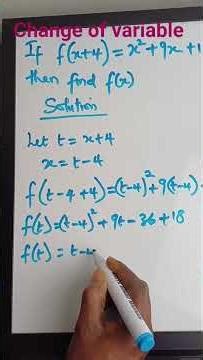 Change of variable
If f(x+4) = x² + 9x + 1
then find f(x)
Solution
Let t = x+4
x = t-4
f(t-4+4) = (t-4)² + 9(t-4)
f(t) = (t-4)² + 9t - 36 + 18
f(t) = t-4